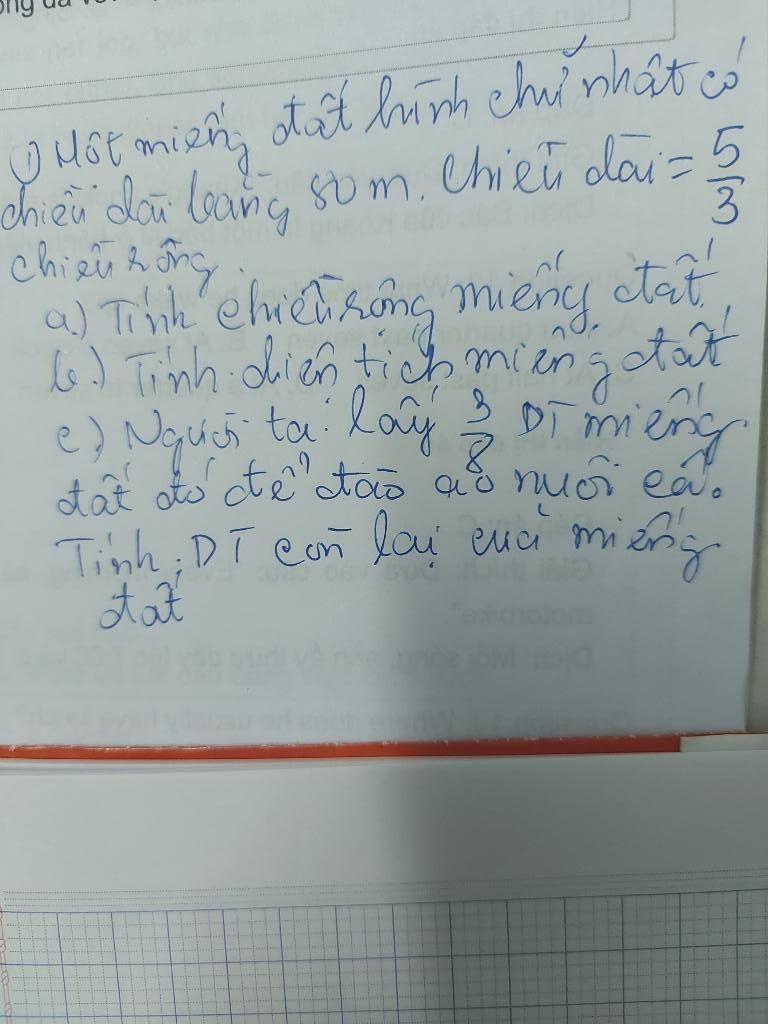 ① Một miếng đất hình chữ nhật có
chiều dài bằng 80 m. Chiều dài = 5/3
chiều rộng.
a.) Tính chiều rộng miếng đất.
b.) Tính diện tích miếng đất
c) Người ta lấy 3/8 DT miếng
đất đó để đào ao nuôi cá.
Tính DT còn lại của miếng
đất